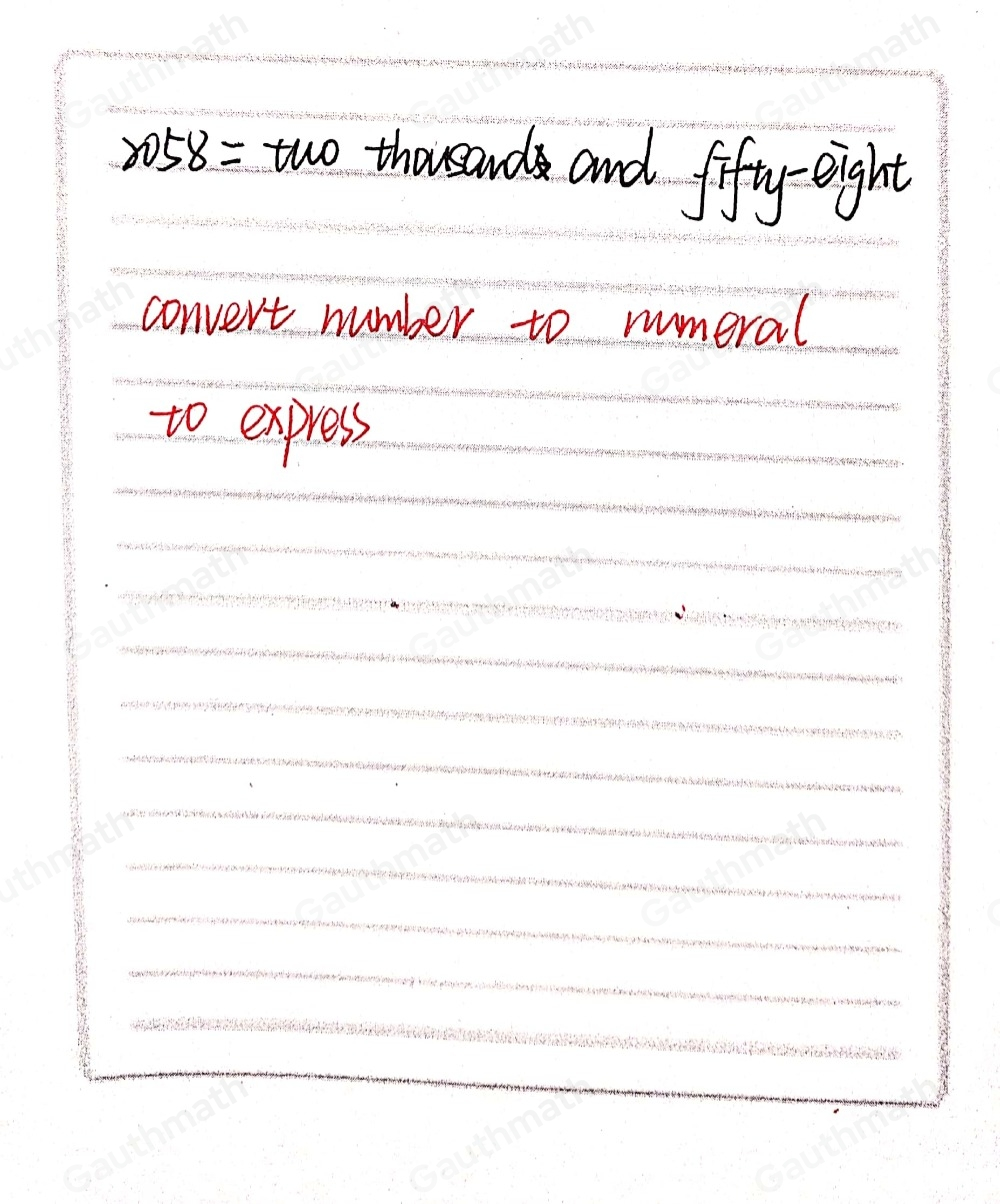 2058 = two thousands and fifty-eight
convert number to numeral
to express